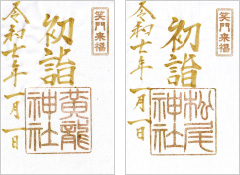 笑門来福
初詣
令和七年一月一日
黄龍神社
笑門来福
初詣
令和七年一月一日
松尾神社